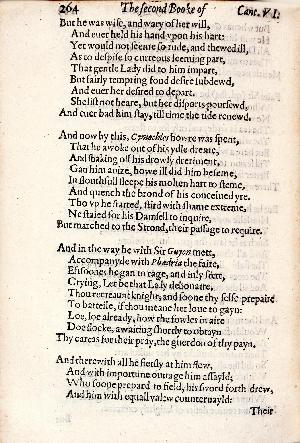 264 The second Booke of Cant. VI.
But he was wise, and wary of her will,
And euer held his hand vpon his hart:
Yet would not seeme so rude, and thewed ill,
As to despise so curteous seeming part,
That gentle Lady did to him impart,
But fairly tempring fond desire subdewd,
And euer her desired to depart.
She list not heare, but her disports poursewd,
And euer bad him stay, till time the tide renewd.
And now by this, Cymochles howre was spent,
That he awoke out of his ydle dreme,
And shaking off his drowsy dreriment,
Gan him auize, howe ill did him beseme,
In slouthfull sleepe his molten hart to steme,
And quench the brond of his conceiued yre.
Tho vp he started, stird with shame extreme,
Ne staied for his Damsell to inquire,
But marched to the Strond, their passage to require.
And in the way he with Sir Guyon mett,
Accompanyde with Phædria the faire,
Eftsoones he gan to rage, and inly frett,
Crying, Let be that Lady debonaire,
Thou recreaunt knight, and soone thy selfe prepaire
To batteile, if thou meane her loue to gayn:
Loe, loe already, how the fowles in aire
Doe flocke, awaiting shortly to obtayn
Thy carcas for their pray, the guerdon of thy payn.
And therewithall he fiersly at him flew,
And with importune outrage him assayld;
Who soone prepard to field, his sword forth drew,
And him with equall valew countervayld:
Their